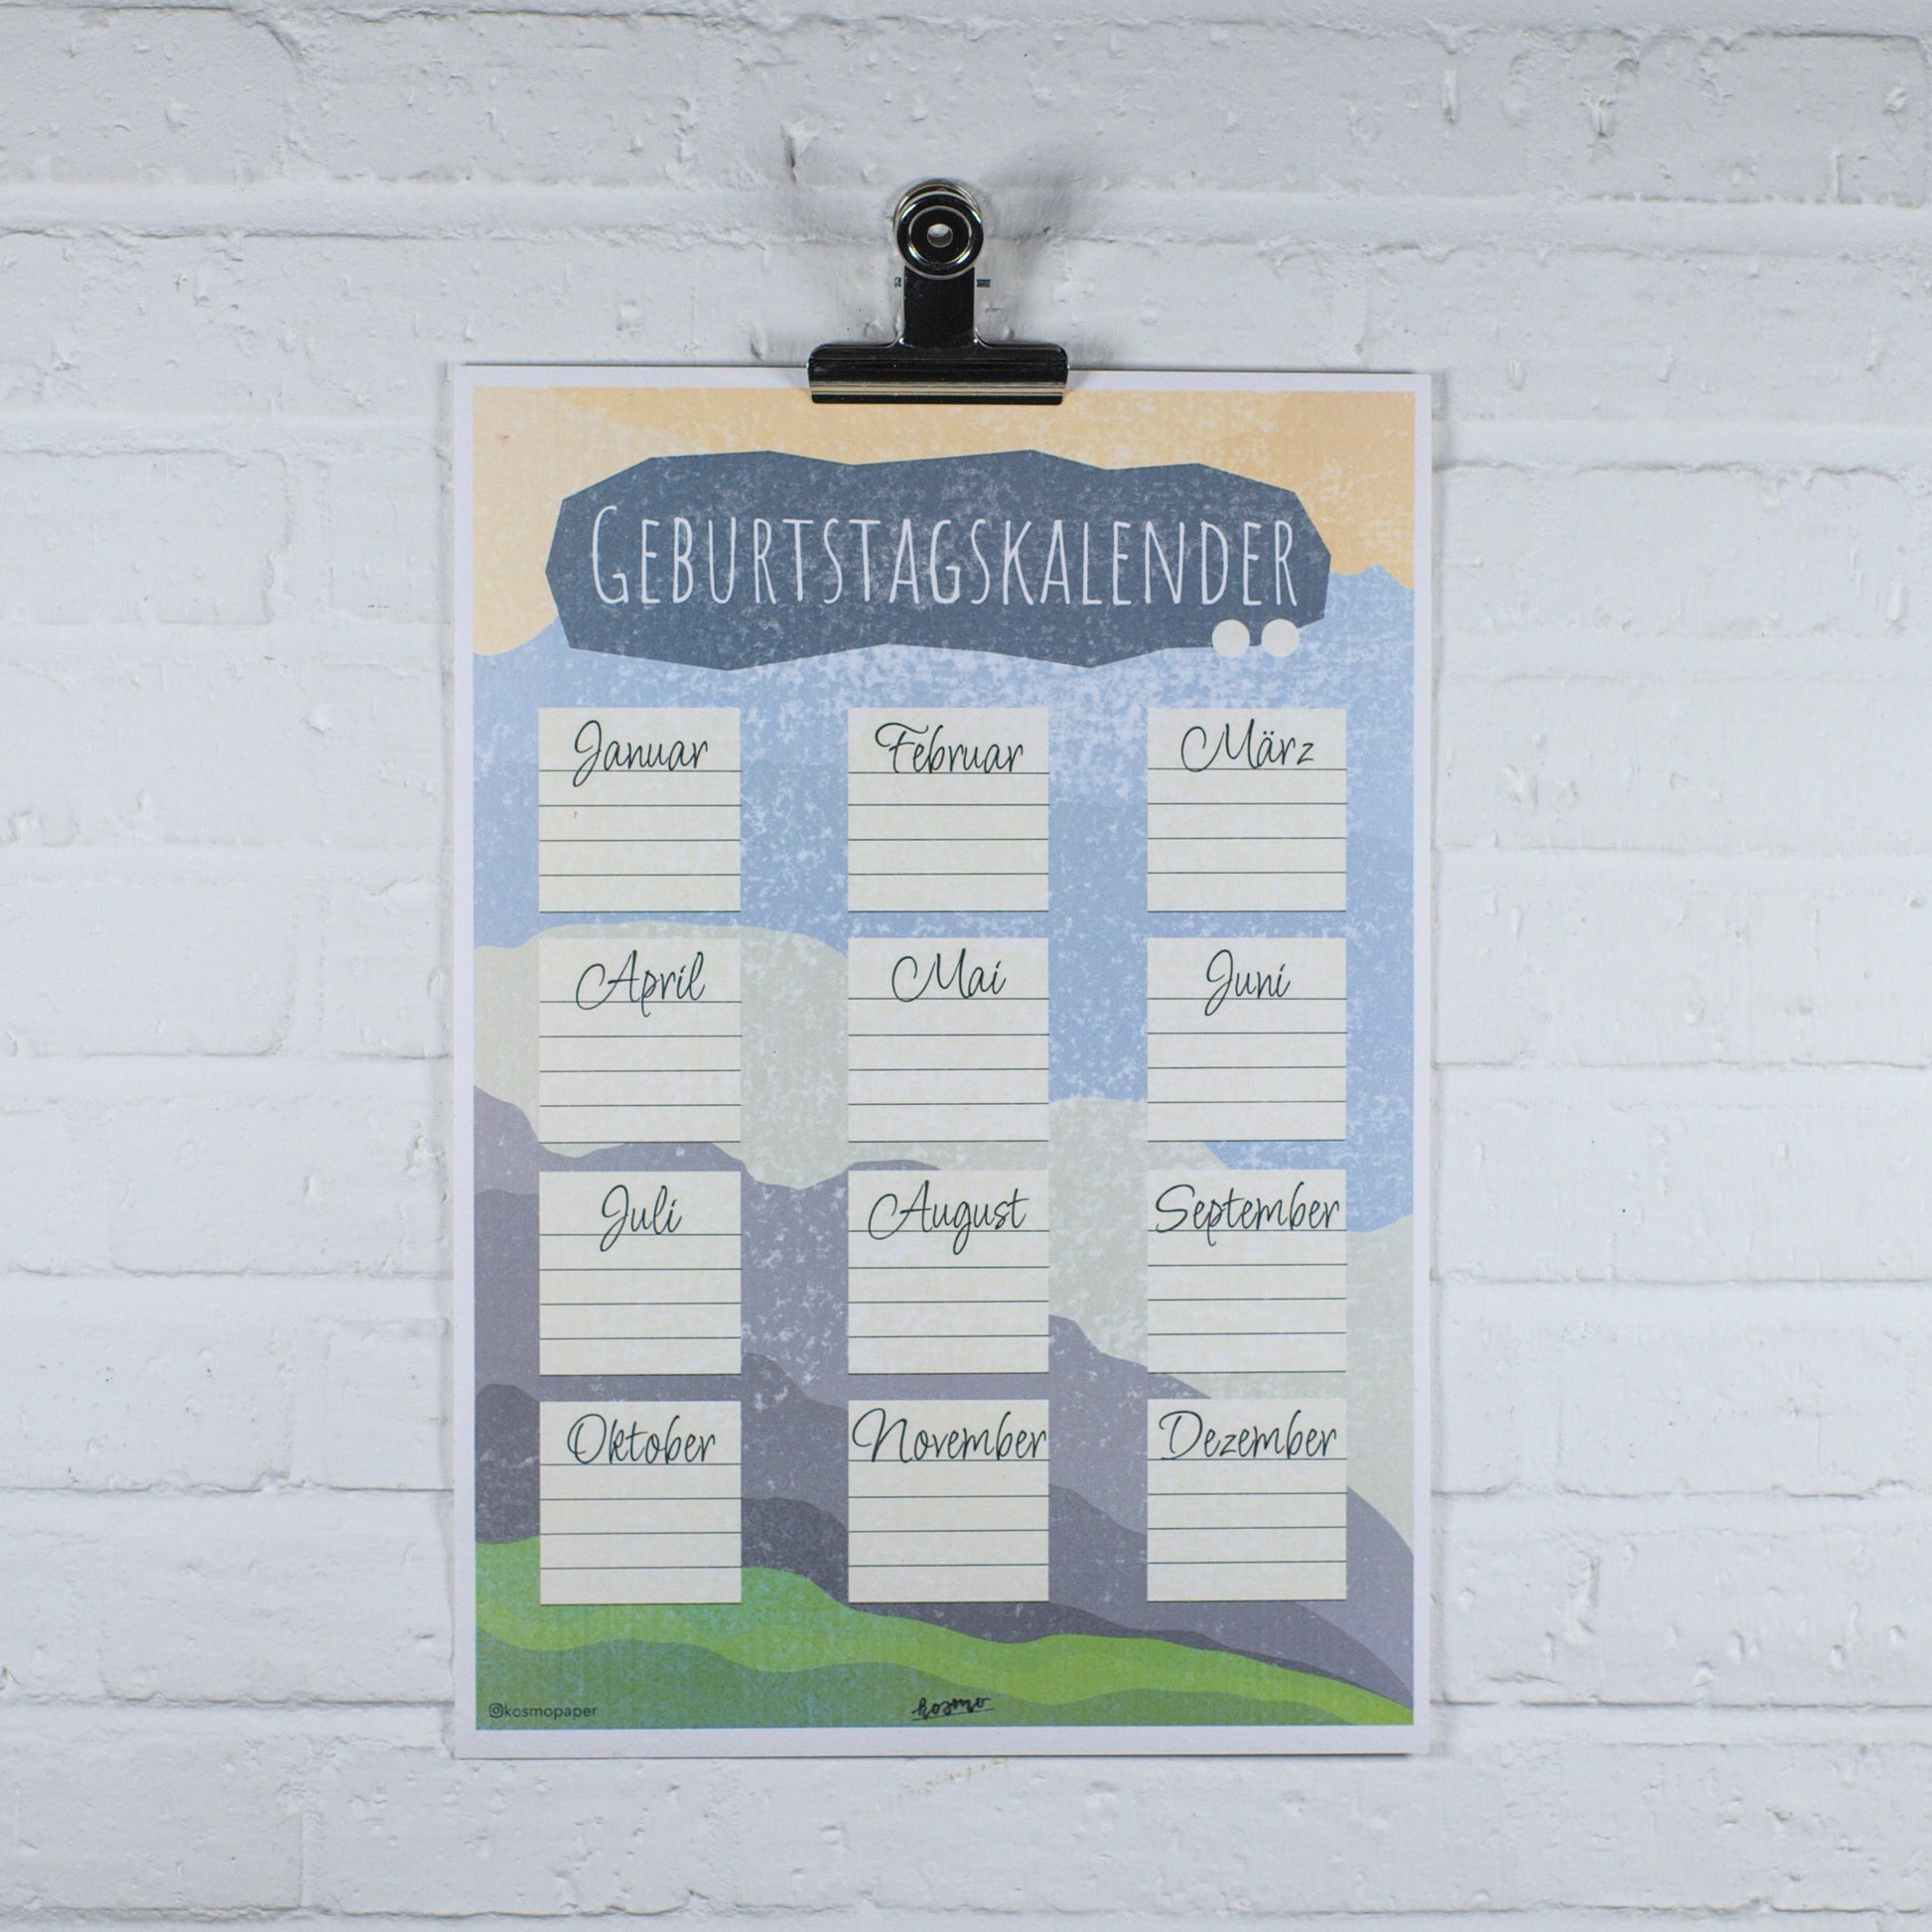 GEBURTSTAGSKALENDER
Januar Februar März
April Mai Juni
Juli August September
Oktober November Dezember
@kosmopaper
kosmo